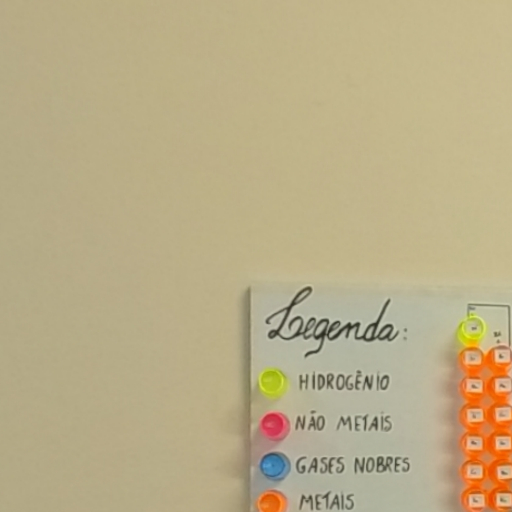 Legenda:
HIDROGÊNIO
NÃO METAIS
GASES NOBRES
METAIS